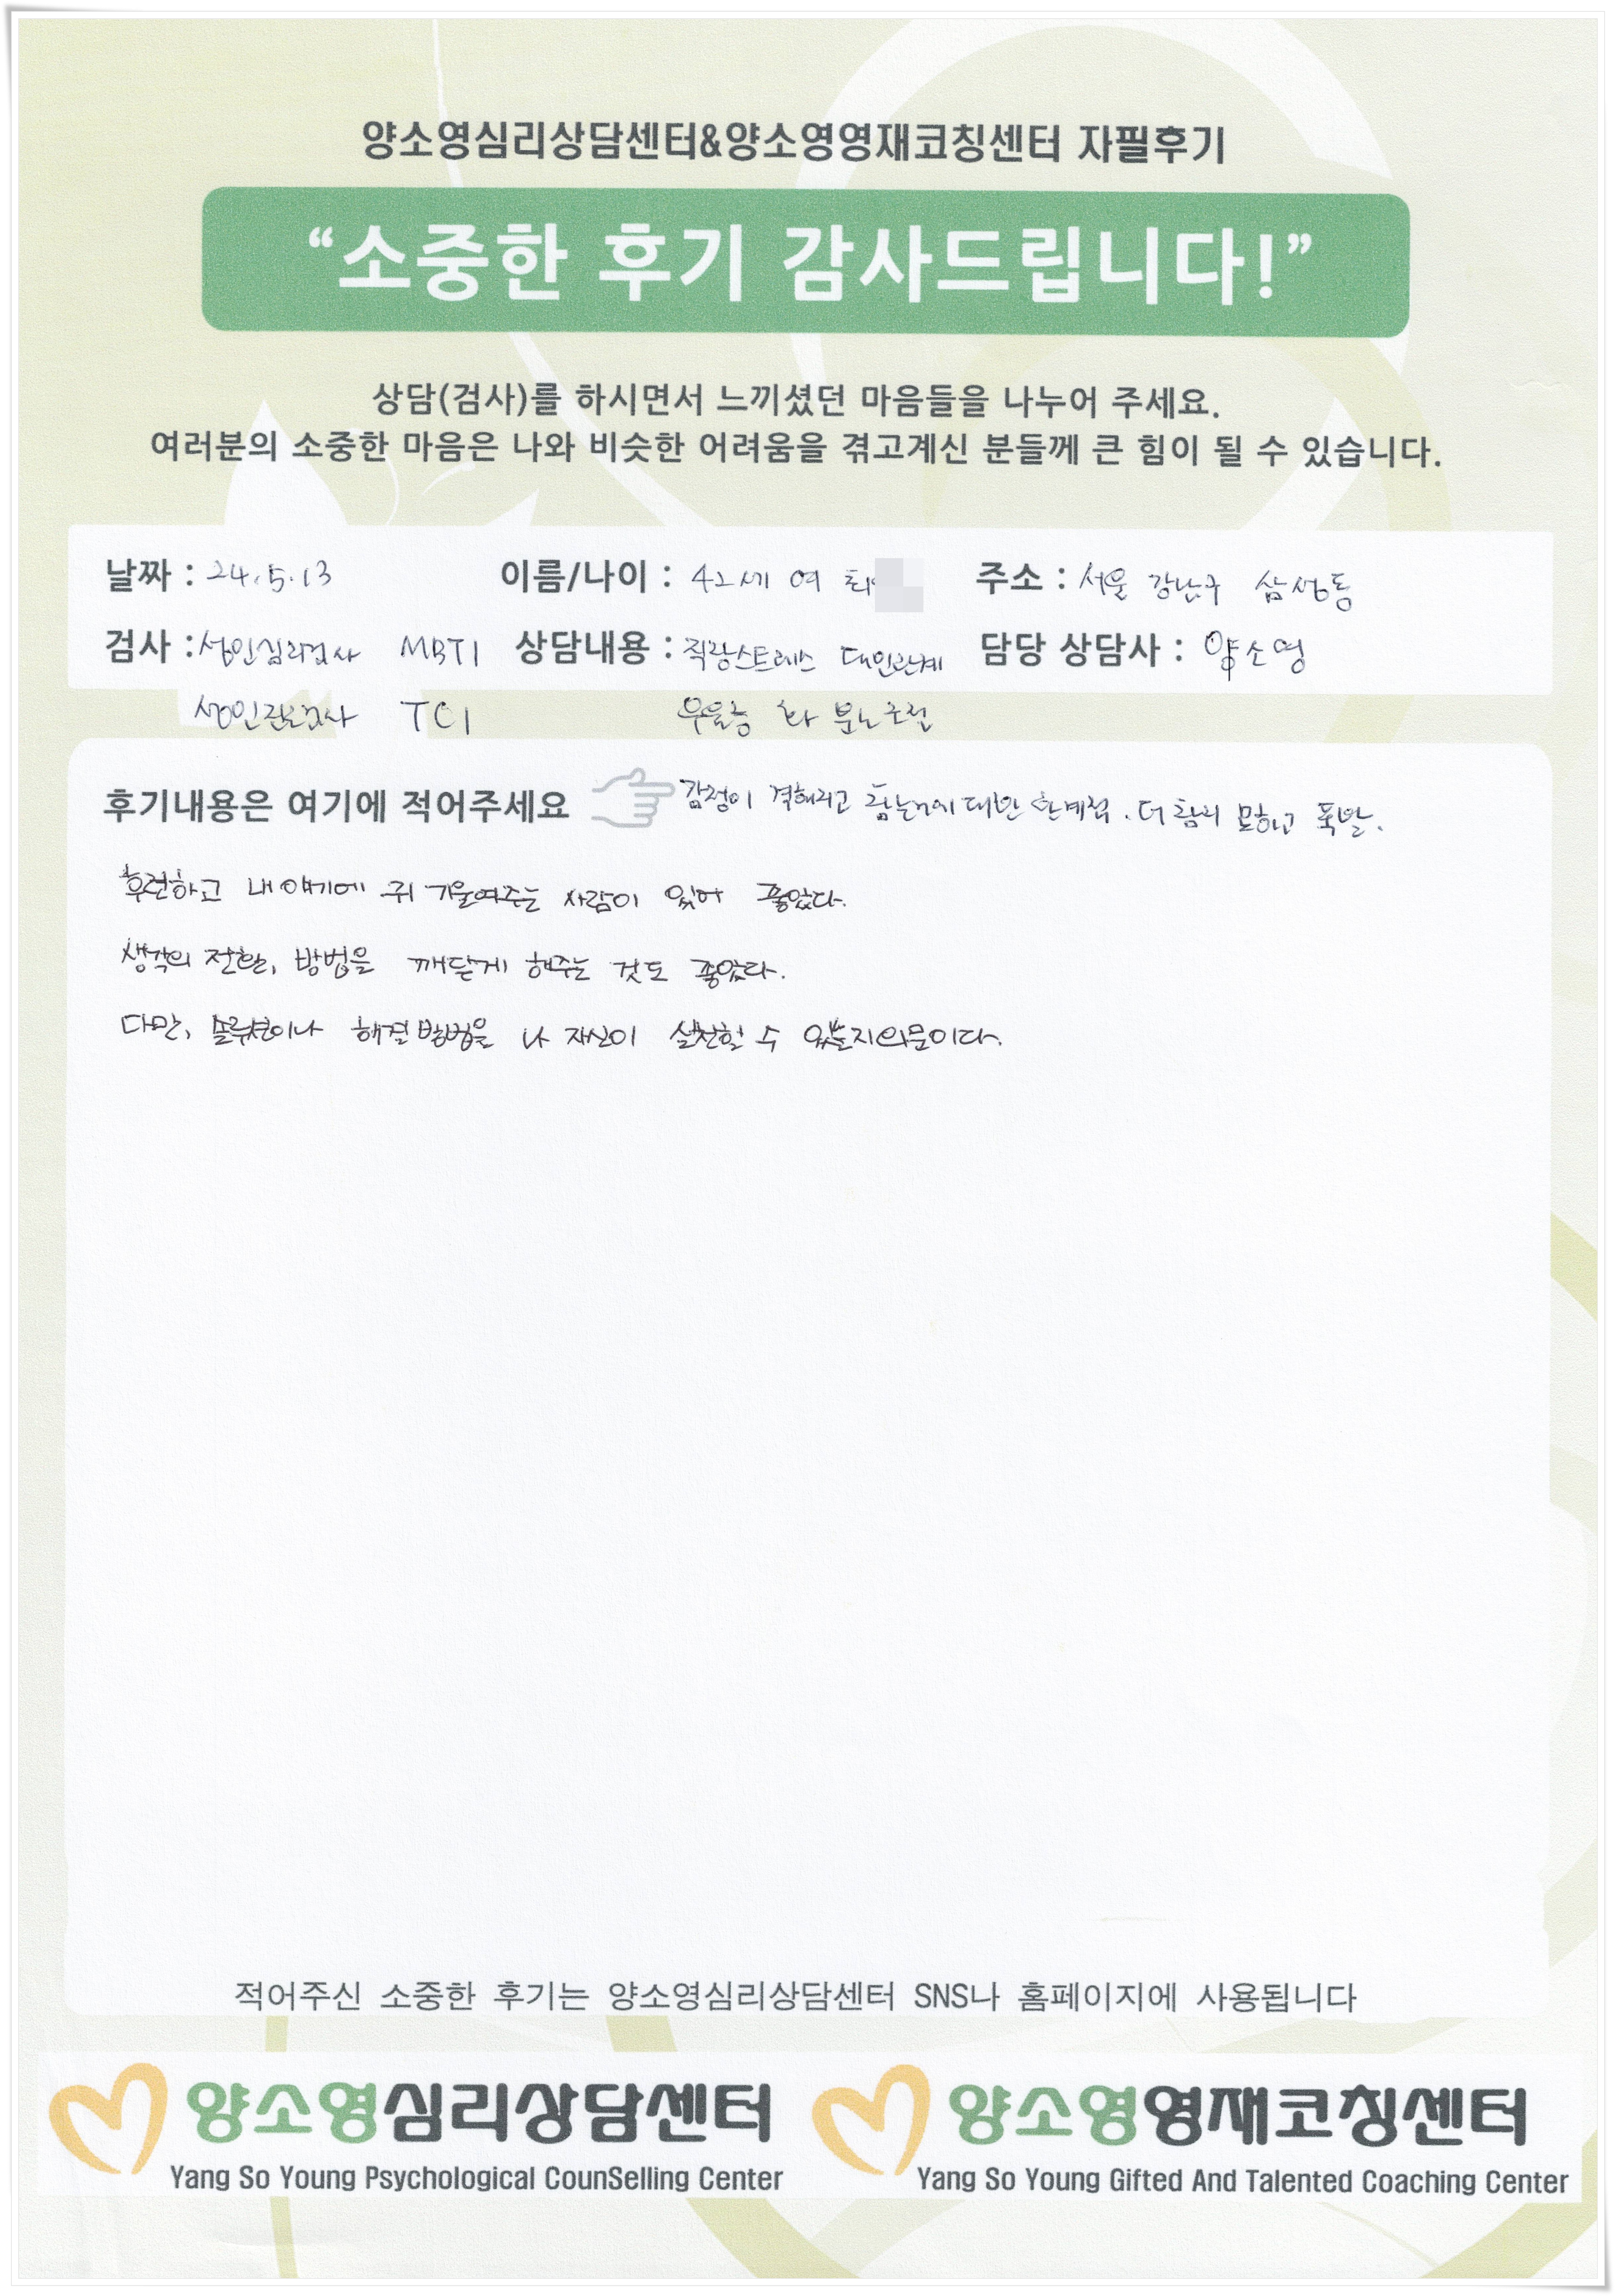 양소영심리상담센터&양소영영재코칭센터 자필후기
“소중한 후기 감사드립니다!”
상담(검사)를 하시면서 느끼셨던 마음들을 나누어 주세요.
여러분의 소중한 마음은 나와 비슷한 어려움을 겪고계신 분들께 큰 힘이 될 수 있습니다.
날짜 : 24.5.13 이름/나이 : 42세 여 최 주소 : 서울 강남구 삼성동
검사 : 성인심리검사 MBTI 상담내용 : 직장스트레스 대인관계 담당 상담사 : 양소영
성인검사 TCI 우울증 화 분노조절
후기내용은 여기에 적어주세요 감정이 격해지고 참는거에 대한 한계점. 더 참지 못하고 폭발.
후련하고 내 얘기에 귀 기울여주는 사람이 있어 좋았다.
생각의 전환, 방법을 깨닫게 해주는 것도 좋았다.
다만, 솔루션이나 해결방법을 나 자신이 실천할 수 있을지 의문이다.
적어주신 소중한 후기는 양소영심리상담센터 SNS나 홈페이지에 사용됩니다
양소영심리상담센터 양소영영재코칭센터
Yang So Young Psychological CounSelling Center Yang So Young Gifted And Talented Coaching Center